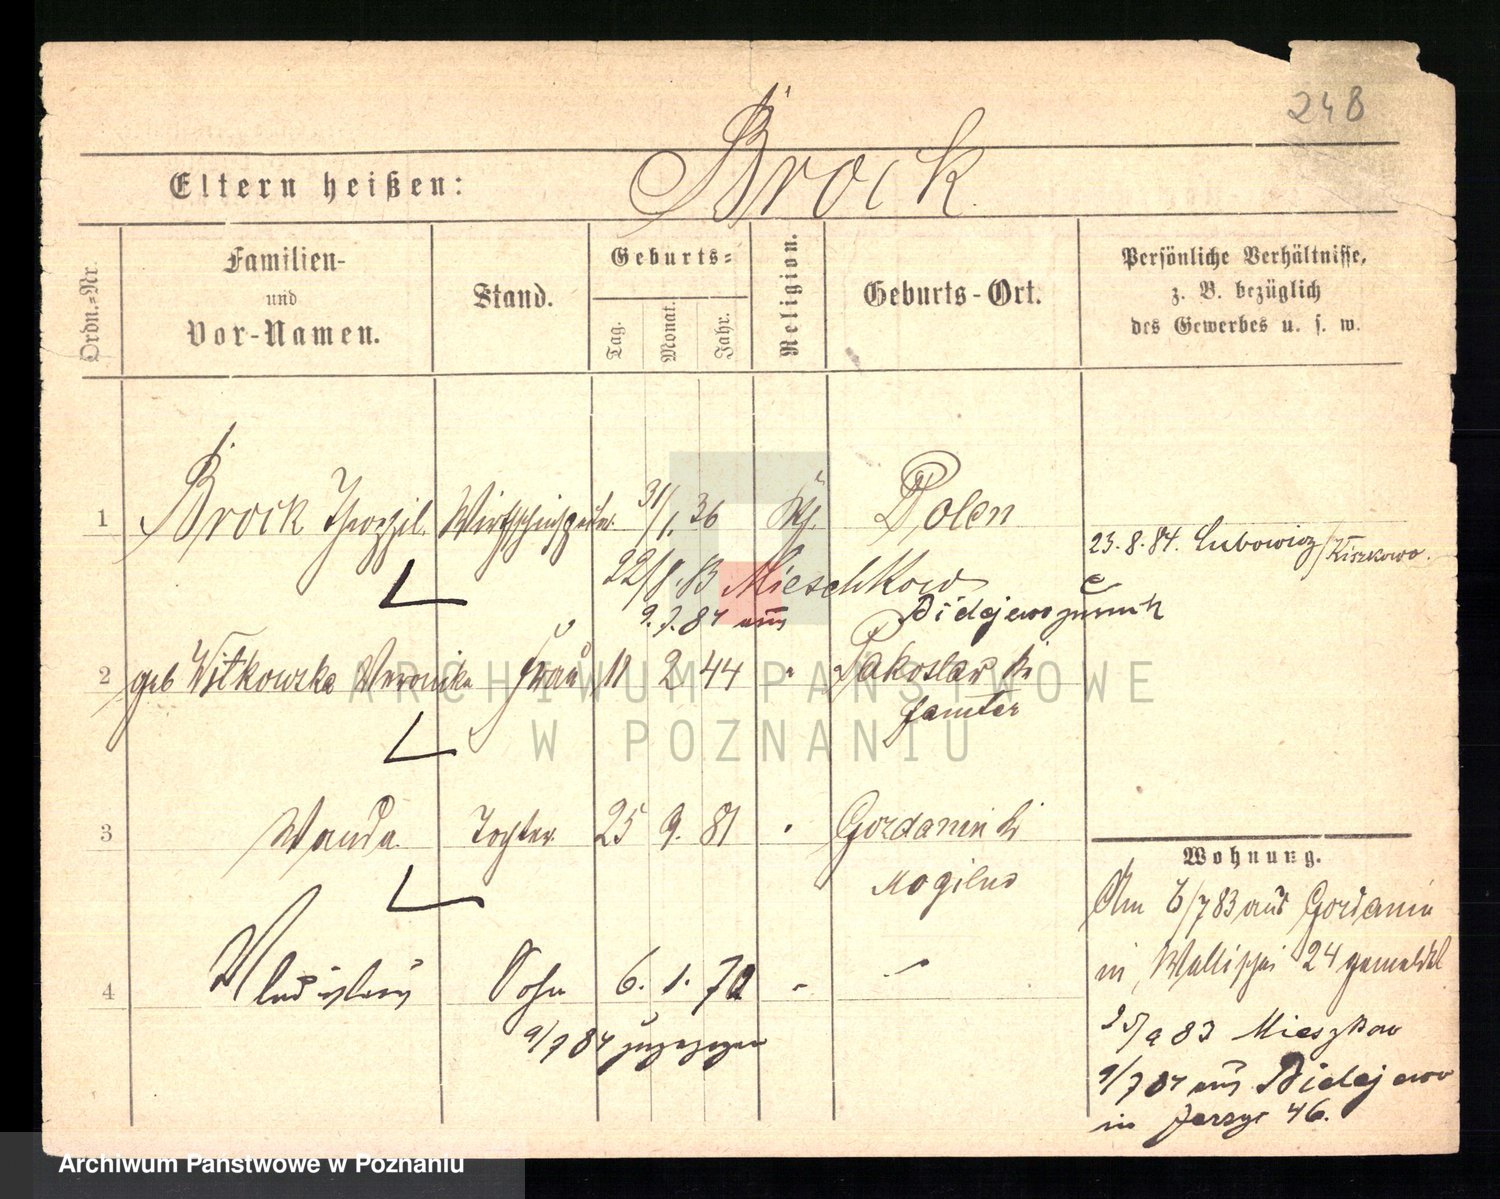 248
Eltern heißen: Brock
Ordn.=Nr.
Familien-
und
Vor-Namen.
Stand.
Geburts=
Tag.
Monat.
Jahr.
Religion.
Geburts-Ort.
Persönliche Verhältnisse,
z. B. bezüglich
des Gewerbes u. s. w.
1 Brock Theophil. 31/1. 36 Kth. Polen
23. 8. 84. Lubowicz / Kiszkowo.
22/8. 83 Mieschkow
9. 7. 84 aus Bidejewo zurück
2 geb Witkowska Veronika Frau 11 2 44 " Pakoslaw Kr
Samter
3 Wanda Tochter 25 9. 81 " Gordanin Kr
Mogilno
4 Vladislaus Sohn 6. 1. 72 "
9/7 84 zugezogen
Wohnung.
Am 6/7 83 aus Gordanin
in Wallischei 24 gemeldet
25/9 83 Mieszkow
9/7 84 aus Bidejewo
in Jersyc 46.
ARCHIWUM PAŃSTWOWE
W POZNANIU
Archiwum Państwowe w Poznaniu